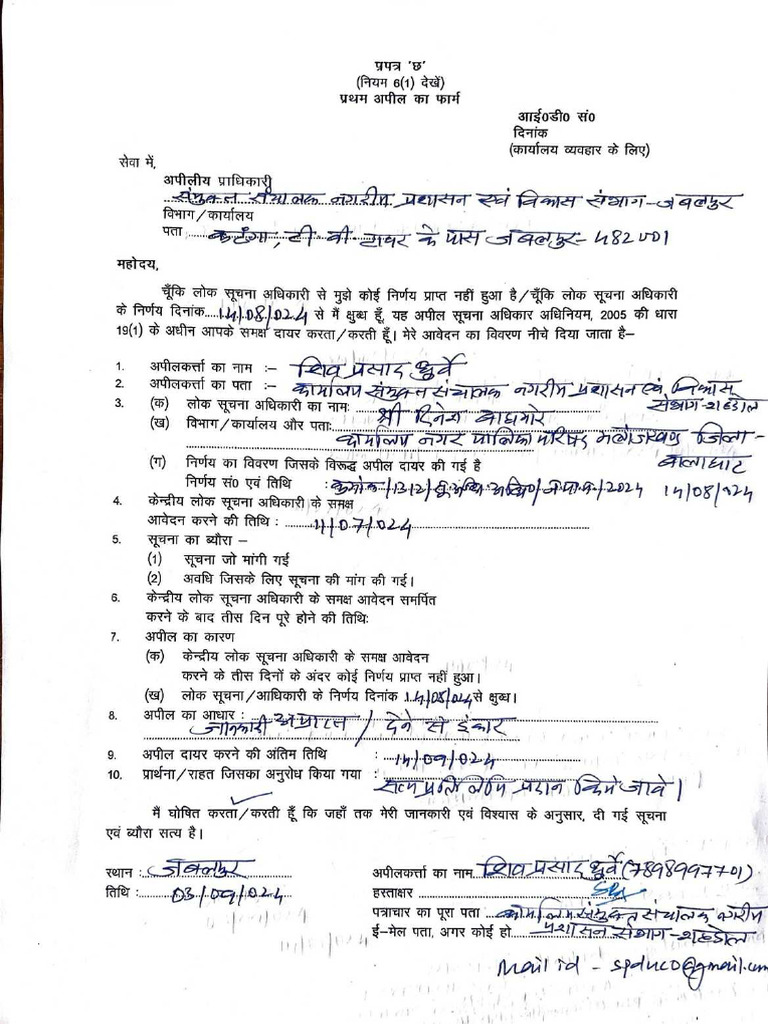 प्रपत्र 'छ'
(नियम 6(1) देखें)
प्रथम अपील का फार्म
आई0डी0 सं0
दिनांक
(कार्यालय व्यवहार के लिए)
सेवा में,
अपीलीय प्राधिकारी
संयुक्त संचालक नगरीय प्रशासन एवं विकास संभाग-जबलपुर
विभाग/कार्यालय
पता कटंगा, टी वी टावर के पास जबलपुर-482001
महोदय,
चूँकि लोक सूचना अधिकारी से मुझे कोई निर्णय प्राप्त नहीं हुआ है/चूँकि लोक सूचना अधिकारी
के निर्णय दिनांक 14/08/024 से मैं क्षुब्ध हूँ, यह अपील सूचना अधिकार अधिनियम, 2005 की धारा
19(1) के अधीन आपके समक्ष दायर करता/करती हूँ। मेरे आवेदन का विवरण नीचे दिया जाता है—
1. अपीलकर्त्ता का नाम :- शिव प्रसाद धुर्वे
2. अपीलकर्त्ता का पता :- कार्यालय संयुक्त संचालक नगरीय प्रशासन एवं विकास
संभाग-शहडोल
3. (क) लोक सूचना अधिकारी का नाम: श्री दिनेश वाघमारे
(ख) विभाग/कार्यालय और पता:
कार्यालय नगर पालिका परिषद मलाजखण्ड जिला-
बालाघाट
(ग) निर्णय का विवरण जिसके विरूद्ध अपील दायर की गई है
निर्णय सं0 एवं तिथि : क्रमांक/1312/ /2024 14/08/024
4. केन्द्रीय लोक सूचना अधिकारी के समक्ष
आवेदन करने की तिथि : 11/07/024
5. सूचना का ब्यौरा –
(1) सूचना जो मांगी गई
(2) अवधि जिसके लिए सूचना की मांग की गई।
6. केन्द्रीय लोक सूचना अधिकारी के समक्ष आवेदन समर्पित
करने के बाद तीस दिन पूरे होने की तिथि:
7. अपील का कारण
(क) केन्द्रीय लोक सूचना अधिकारी के समक्ष आवेदन
करने के तीस दिनों के अंदर कोई निर्णय प्राप्त नहीं हुआ।
(ख) लोक सूचना/आधिकारी के निर्णय दिनांक 14/08/024 से क्षुब्ध।
8. अपील का आधार :
जानकारी अप्राप्त / देने से इंकार
9. अपील दायर करने की अंतिम तिथि : 14/09/024
10. प्रार्थना/राहत जिसका अनुरोध किया गया : सत्य प्रतिलिपि प्रदान किये जावे।
मैं घोषित करता/करती हूँ कि जहाँ तक मेरी जानकारी एवं विश्वास के अनुसार, दी गई सूचना
एवं ब्यौरा सत्य है।
स्थान : जबलपुर
तिथि : 03/09/024
अपीलकर्त्ता का नाम शिव प्रसाद धुर्वे (7898997701)
हस्ताक्षर
पत्राचार का पूरा पता कार्यालय संयुक्त संचालक नगरीय
ई-मेल पता, अगर कोई हो प्रशासन संभाग-शहडोल
Mail id - spduco@gmail.com